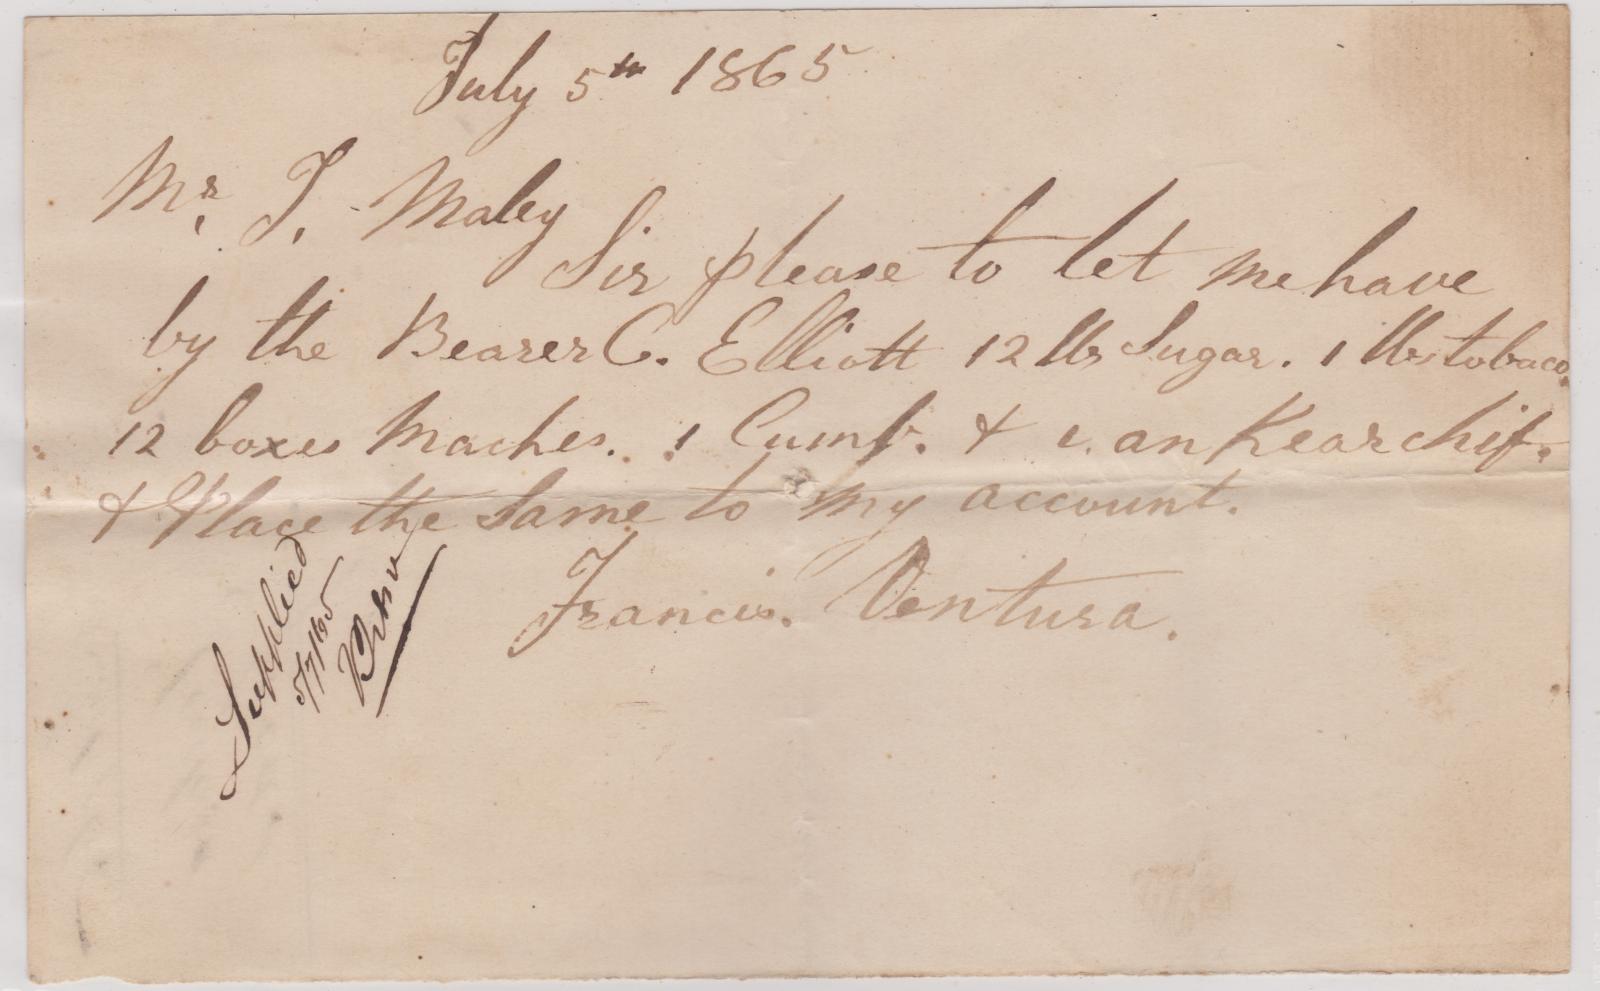 July 5th 1865
Mr. T. Maley
Sir please to let me have
by the Bearer C. Elliott 12 lbs Sugar. 1 lbs tobaco.
12 boxes Maches. 1 Cumb. & 1. an Kearchif.
& Place the same to my account.
Francis. Ventura.
Supplied
5/7/65